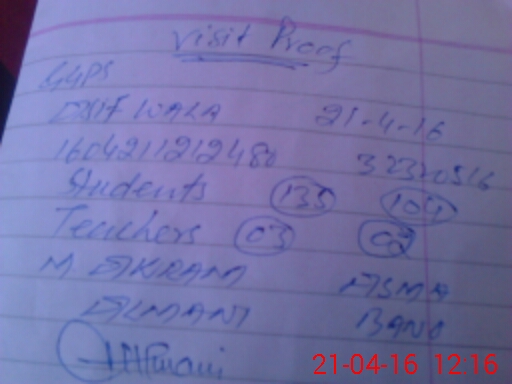 Visit Proof
GGPS
WALA 21-4-16
1604211212480 32320516
Students 135 104
Teachers 03 02
M. AKRAM ASMA
ALMANI BANO
21-04-16 12:16